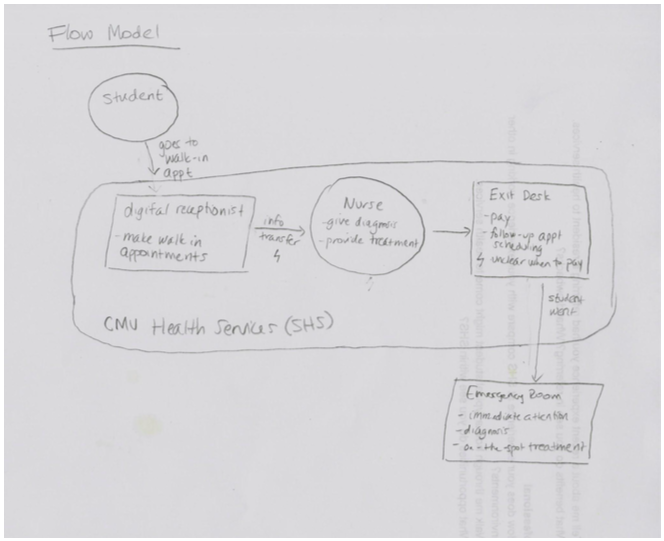 Flow Model
Student
goes to
walk-in
appt
digital receptionist
- make walk in
appointments
info
transfer
Nurse
- give diagnosis
- provide treatment
Exit Desk
- pay
- follow-up appt
scheduling
unclear when to pay
CMU Health Services (SHS)
student
went
Emergency Room
- immediate attention
- diagnosis
- on-the-spot treatment